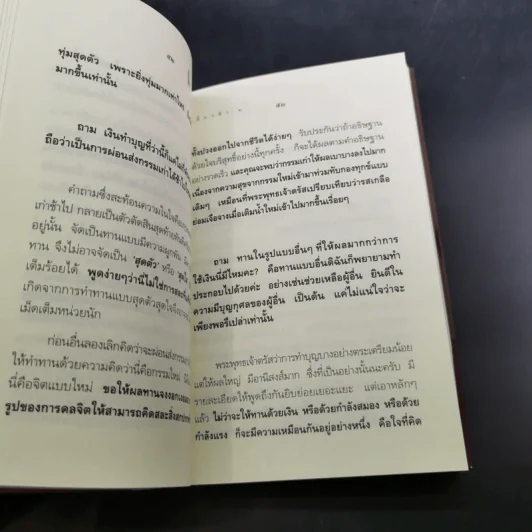 ๕๒
ทุ่มสุดตัว เพราะยิ่งทุ่มมากเท่าไหร่
มากขึ้นเท่านั้น
ถาม เงินทำบุญที่ว่านี้ก็แค่
ถือว่าเป็นการผ่อนส่งกรรมเก่าได้ช้าไป
คำถามซึ่งสะท้อนความในใจ
เก่าช้าไป กลายเป็นตัวตัดสินสุดท้าย
อยู่นั้น จัดเป็นทานแบบมีความผูกพัน
ทาน จึงไม่อาจจัดเป็น 'สุดตัว' หรือ
เต็มร้อยได้ พูดง่ายๆว่านี่ไม่ใช่การสละ
เกิดจากการทำทานแบบสุดตัวสุดใจ
เม็ดเต็มหน่วยนัก
ก่อนอื่นลองเลิกคิดว่าจะผ่อนส่งกรรม
ให้ทำทานด้วยความคิดว่านี่คือกรรมใหม่
นี่คือจิตแบบใหม่ ขอให้ผลทานจงออก
รูปของการดลจิตให้สามารถคิดสละสิ่ง
๕๓
ทั้งปวงออกไปจากชีวิตได้ง่ายๆ รับประกันว่าถ้าอธิษฐาน
ด้วยใจบริสุทธิ์อย่างนี้ทุกครั้ง ก็จะได้ผลตามคำอธิษฐาน
อย่างรวดเร็ว และคุณจะพบว่ากรรมเก่าให้ผลเบาบางลงไปมาก
เนื่องจากความสุขจากกรรมใหม่เข้ามาท่วมทับกองทุกข์แบบ
เดิมๆ เหมือนที่พระพุทธเจ้าตรัสเปรียบเทียบว่ารสเกลือ
ย่อมเจือจางเมื่อเติมน้ำใหม่เข้าไปมากขึ้นเรื่อยๆ
ถาม ทานในรูปแบบอื่นๆ ที่ให้ผลมากกว่าการ
ใช้เงินนี่มีไหมคะ? คือทานแบบอื่นดิฉันก็พยายามทำ
ประกอบไปด้วยค่ะ อย่างเช่นช่วยเหลือผู้อื่น ยินดีใน
ความมีบุญกุศลของผู้อื่น เป็นต้น แค่ไม่แน่ใจว่าจะ
เพียงพอรึเปล่าเท่านั้น
พระพุทธเจ้าตรัสว่าการทำบุญบางอย่างตระเตรียมน้อย
แต่ให้ผลใหญ่ มีอานิสงส์มาก ซึ่งที่เป็นอย่างนั้นนะครับ มี
รายละเอียดให้พูดถึงกันยิบย่อยเยอะแยะ แต่เอาหลักๆ
แล้ว ไม่ว่าจะให้ทานด้วยเงิน หรือด้วยกำลังสมอง หรือด้วย
กำลังแรง ก็จะมีความเหมือนกันอยู่อย่างหนึ่ง คือใจที่คิด